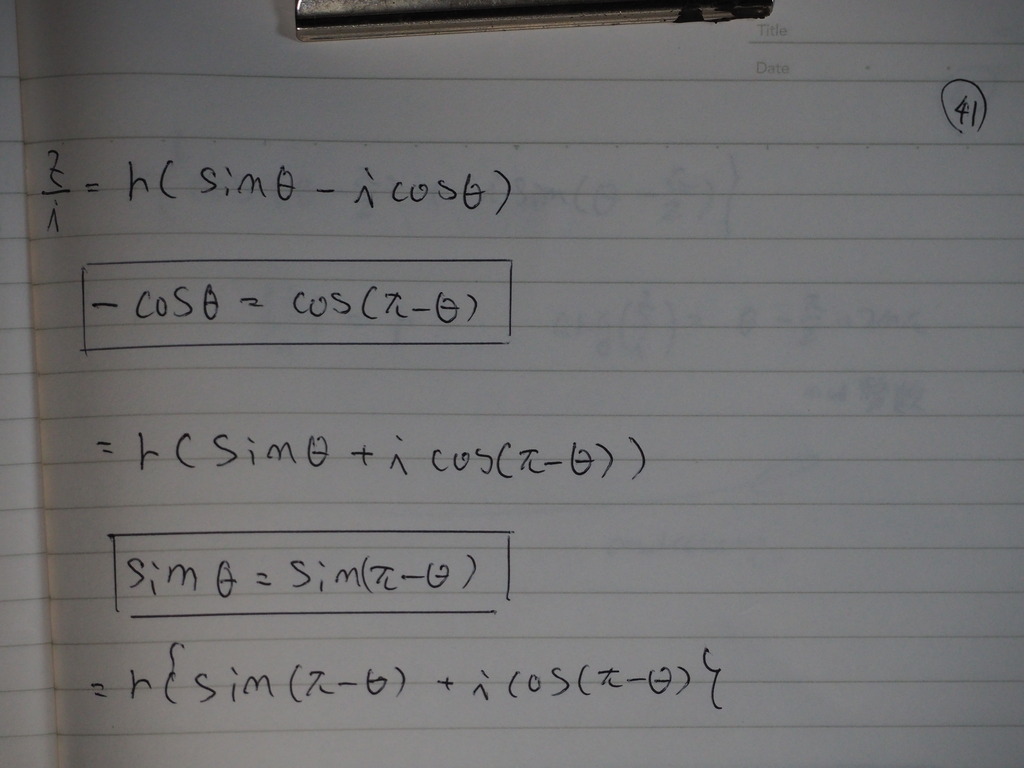 Title
Date
41
z/i = r( sinθ − i cosθ)
− cosθ = cos(π−θ)
= r( sinθ + i cos(π−θ))
sin θ = sin(π−θ)
= r{ sin(π−θ) + i cos(π−θ)}